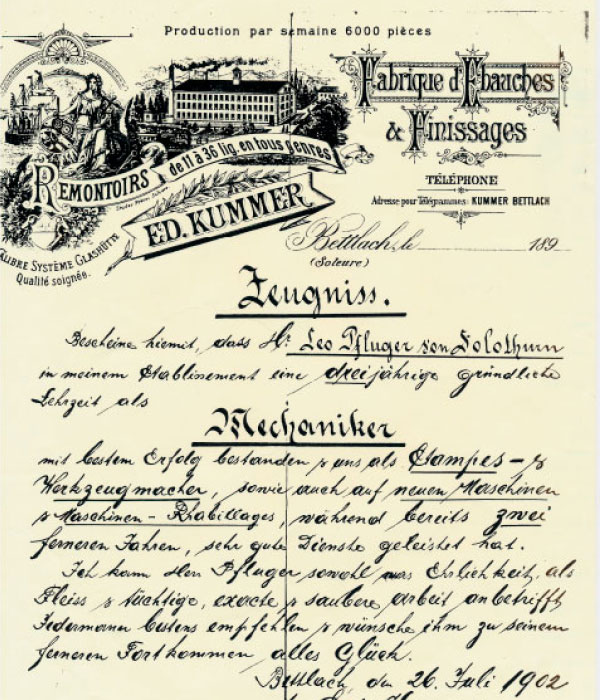 Production par semaine 6000 pièces
Fabrique d'Ebauches
& Finissages
REMONTOIRS de 11 à 36 lig. en tous genres
TÉLÉPHONE
Adresse pour Télégrammes: KUMMER BETTLACH
ED. KUMMER
CALIBRE SYSTÈME GLASHÜTTE
Qualité soignée.
Bettlach, le 189
(Soleure)
Zeugniss.
Bescheine hiemit, dass Hr. Leo Pfluger von Solothurn
in meinem Etablissement eine dreijährige gründliche
Lehrzeit als
Mechaniker
mit bestem Erfolg bestanden & uns als Stampes- &
Werkzeugmacher, sowie auch auf neuen Maschinen
& Maschinen-Rhabillages, während bereits zwei
ferneren Jahren, sehr gute Dienste geleistet hat.
Ich kann Herr Pfluger sowohl was Ehrlichkeit, als
Fleiss & tüchtige, exacte & saubere arbeit anbetrifft
Jedermann bestens empfehlen & wünsche ihm zu seinem
ferneren Fortkommen alles Glück.
Bettlach den 26. Juli 1902